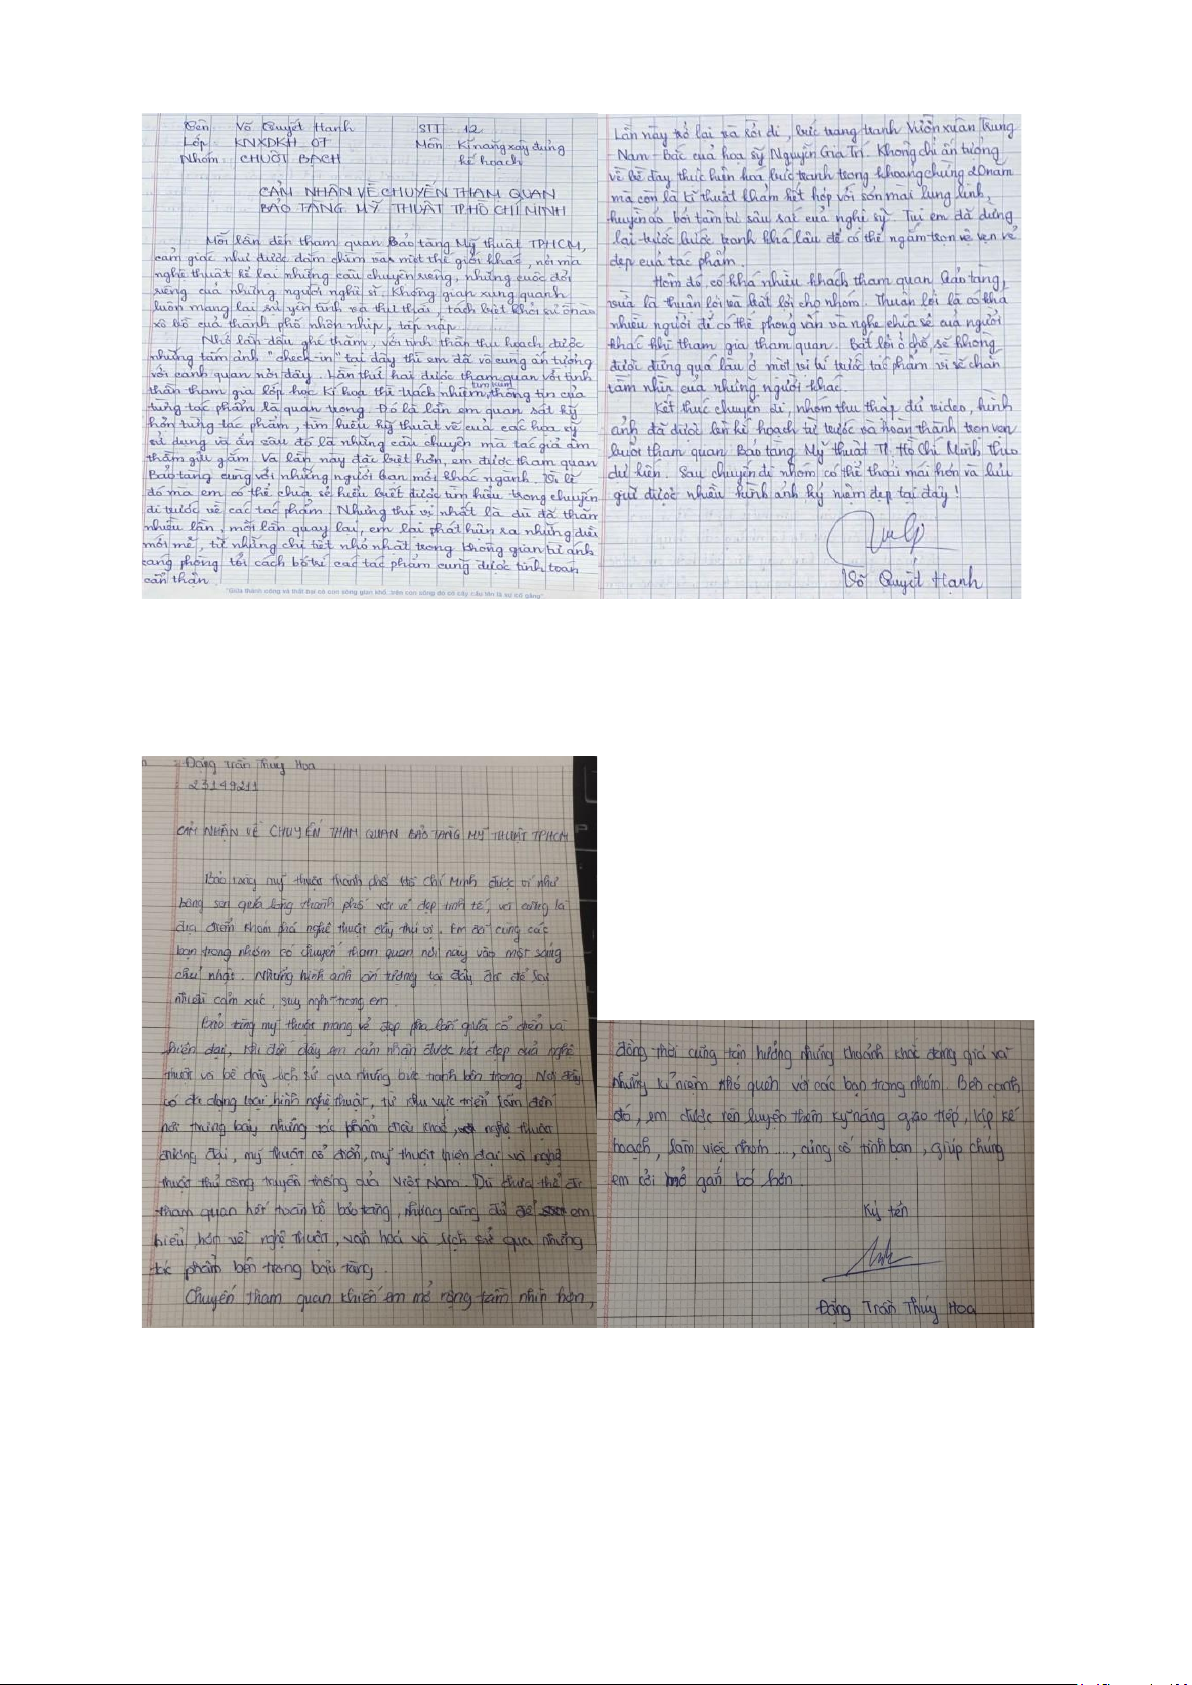 Tên Võ Quyết Hạnh STT 12
Lớp KNXDKH 07 Môn Kĩ năng xây dựng
Nhóm CHUỘT BẠCH kế hoạch
CẢM NHẬN VỀ CHUYẾN THAM QUAN
BẢO TÀNG MỸ THUẬT TP HỒ CHÍ MINH
Mỗi lần đến tham quan Bảo tàng Mỹ thuật TPHCM,
cảm giác như được đắm chìm vào một thế giới khác, nơi mà
nghệ thuật kể lại những câu chuyện riêng, những cuộc đời
riêng của những người nghệ sĩ. Không gian xung quanh
luôn mang lại sự yên tĩnh và thư thái, tách biệt khỏi sự ồn ào
xô bồ của thành phố nhộn nhịp, tấp nập.
Nhớ lần đầu ghé thăm, với tinh thần thu hoạch được
những tấm ảnh "check-in" tại đây thì em đã vô cùng ấn tượng
với cảnh quan nơi đây. Lần thứ hai được tham quan với tinh
thần tham gia lớp học Kí họa thì trách nhiệm, thông tin của
từng tác phẩm là quan trọng. Đó là lần em quan sát kỹ
hơn từng tác phẩm, tìm hiểu kỹ thuật vẽ của các họa sỹ
sử dụng và ẩn sâu đó là những câu chuyện mà tác giả âm
thầm gửi gắm. Và lần này đặc biệt hơn, em được tham quan
Bảo tàng cùng với những người bạn mới khác ngành. Vì lẽ
đó mà em có thể chia sẻ hiểu biết được tìm hiểu trong chuyến
đi trước về các tác phẩm. Nhưng thú vị nhất là dù đã thăm
nhiều lần, mỗi lần quay lại, em lại phát hiện ra những điều
mới mẻ, từ những chi tiết nhỏ nhất trong không gian từ ánh
căng phòng tới cách bố trí các tác phẩm cũng được tính toán
cẩn thận.
"Giữa thành công và thất bại có con sông gian khổ, trên con sông đó có cây cầu tên là sự cố gắng"
Lần này trở lại và rời đi, bức trang tranh Vườn xuân Trung
Nam - Bắc của họa sỹ Nguyễn Gia Trí. Không chỉ ấn tượng
về bề dày thực hiện hoá bức tranh trong khoảng chừng 20 năm
mà còn là kĩ thuật khảm kết hợp với sơn mài lung linh,
huyền ảo bởi tâm tư sâu sắc của nghệ sỹ. Tụi em đã dừng
lại trước bước tranh khá lâu để có thể ngắm trọn vẻ vẹn vẻ
đẹp của tác phẩm.
Hôm đó, có khá nhiều khách tham quan Bảo tàng,
vừa là thuận lợi và bất lợi cho nhóm. Thuận lợi là có khá
nhiều người để có thể phỏng vấn và nghe chia sẻ của người
khác khi tham gia tham quan. Bất lợi ở chỗ, sẽ không
được đứng quá lâu ở một vị trí trước tác phẩm vì sẽ chắn
tầm nhìn của những người khác.
Kết thúc chuyến đi, nhóm thu thập đủ video, hình
ảnh đã được lên kế hoạch từ trước và hoàn thành trọn vẹn
buổi tham quan Bảo tàng Mỹ thuật TP. Hồ Chí Minh theo
dự kiến. Sau chuyến đi nhóm có thể thoải mái hơn và lưu
giữ được nhiều hình ảnh kỷ niệm đẹp tại đây!
Võ Quyết Hạnh
Đặng Trần Thúy Hoa
23149211
CẢM NHẬN VỀ CHUYẾN THAM QUAN BẢO TÀNG MỸ THUẬT TPHCM
Bảo tàng mỹ thuật thành phố Hồ Chí Minh được ví như
giữa lòng thành phố với vẻ đẹp tinh tế, và cũng là
địa điểm khám phá nghệ thuật đầy thú vị. Em đã cùng các
bạn trong nhóm có chuyến tham quan nơi này vào một sáng
chủ nhật. Những hình ảnh ấn tượng tại đây đã để lại
nhiều cảm xúc, suy nghĩ trong em.
Bảo tàng mỹ thuật mang vẻ đẹp pha lẫn giữa cổ điển và
hiện đại, khi đến đây em cảm nhận được nét đẹp của nghệ
thuật và bề dày lịch sử qua những bức tranh bên trong. Nơi đây
có đa dạng loại hình nghệ thuật, từ khu vực triển lãm đến
nơi trưng bày những tác phẩm điêu khắc, nghệ thuật
đương đại, mỹ thuật cổ điển, mỹ thuật hiện đại và nghệ
thuật thủ công truyền thống của Việt Nam. Dù chưa thể đi
tham quan hết toàn bộ bảo tàng, nhưng cũng đủ để em
hiểu hơn về nghệ thuật, văn hoá và lịch sử qua những
tác phẩm bên trong bảo tàng.
Chuyến tham quan khiến em mở rộng tầm nhìn hơn,
đồng thời cũng tận hưởng những khoảnh khắc đáng giá và
những kỉ niệm khó quên với các bạn trong nhóm. Bên cạnh
đó, em được rèn luyện thêm kỹ năng giao tiếp, lập kế
hoạch, làm việc nhóm..., củng cố tình bạn, giúp chúng
em cởi mở gắn bó hơn.
Ký tên
Đặng Trần Thúy Hoa